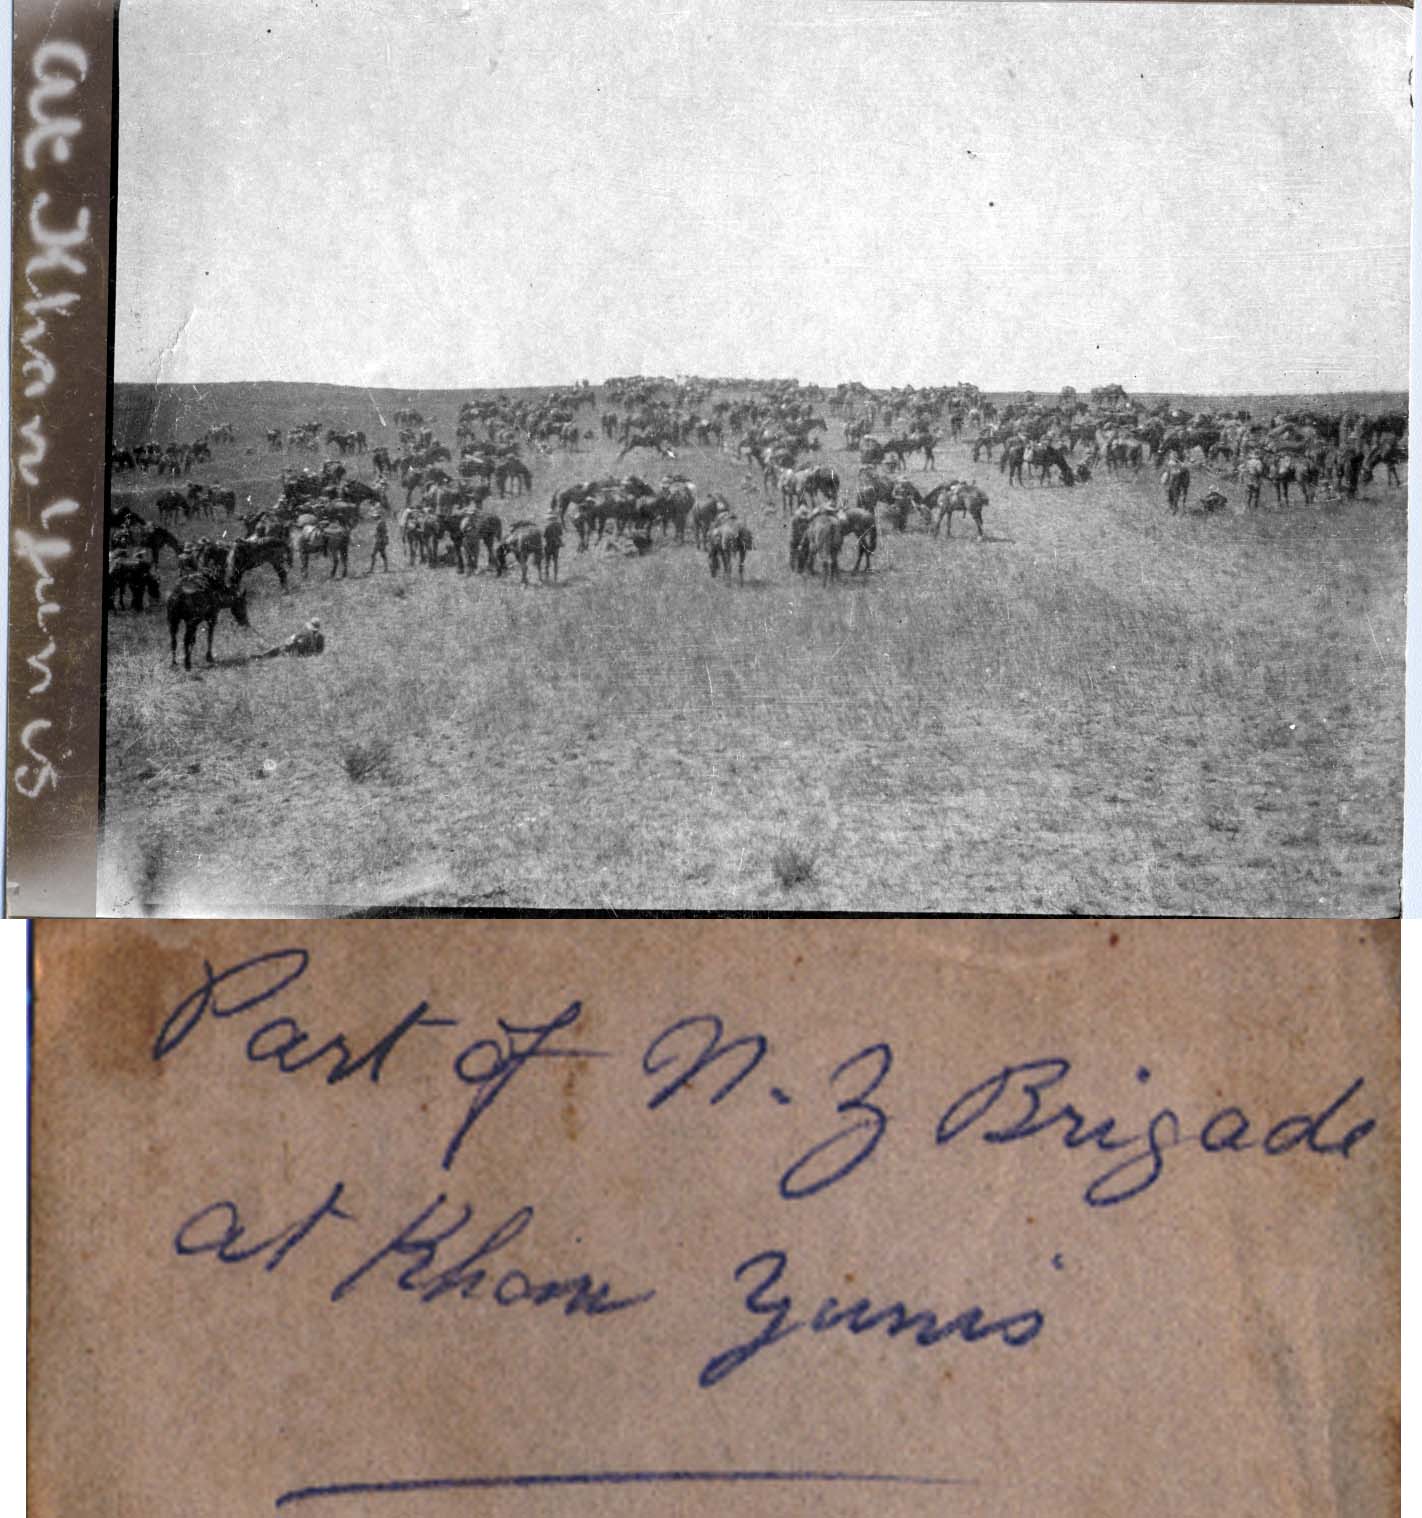 at Khan Yunis
Part of N.Z Brigade
at Khan Yunis